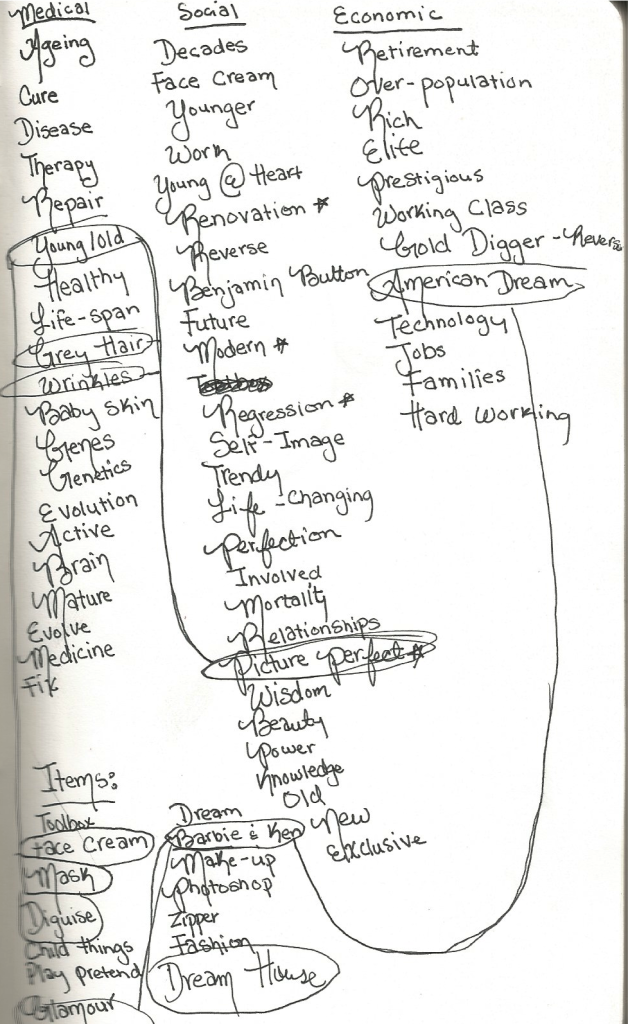 Medical
Ageing
Cure
Disease
Therapy
Repair
Young/old
Healthy
Life-span
Grey Hair
Wrinkles
Baby Skin
Genes
Genetics
Evolution
Active
Brain
Mature
Evolve
Medicine
Fix
Social
Decades
Face Cream
Younger
Work
Young @ Heart
Renovation *
Reverse
Benjamin Button
Future
Modern *
Regression *
Self-Image
Trendy
Life-Changing
Perfection
Involved
Mortality
Relationships
Picture Perfect *
Wisdom
Beauty
Power
Knowledge
Old
New
Exclusive
Economic
Retirement
Over-population
Rich
Elite
Prestigious
Working Class
Gold Digger - Revers
American Dream
Technology
Jobs
Families
Hard Working
Items:
Toolbox
Face Cream
Mask
Diguise
Child things
Play pretend
Glamour
Dream
Barbie & Ken
Make-up
Photoshop
Zipper
Fashion
Dream House